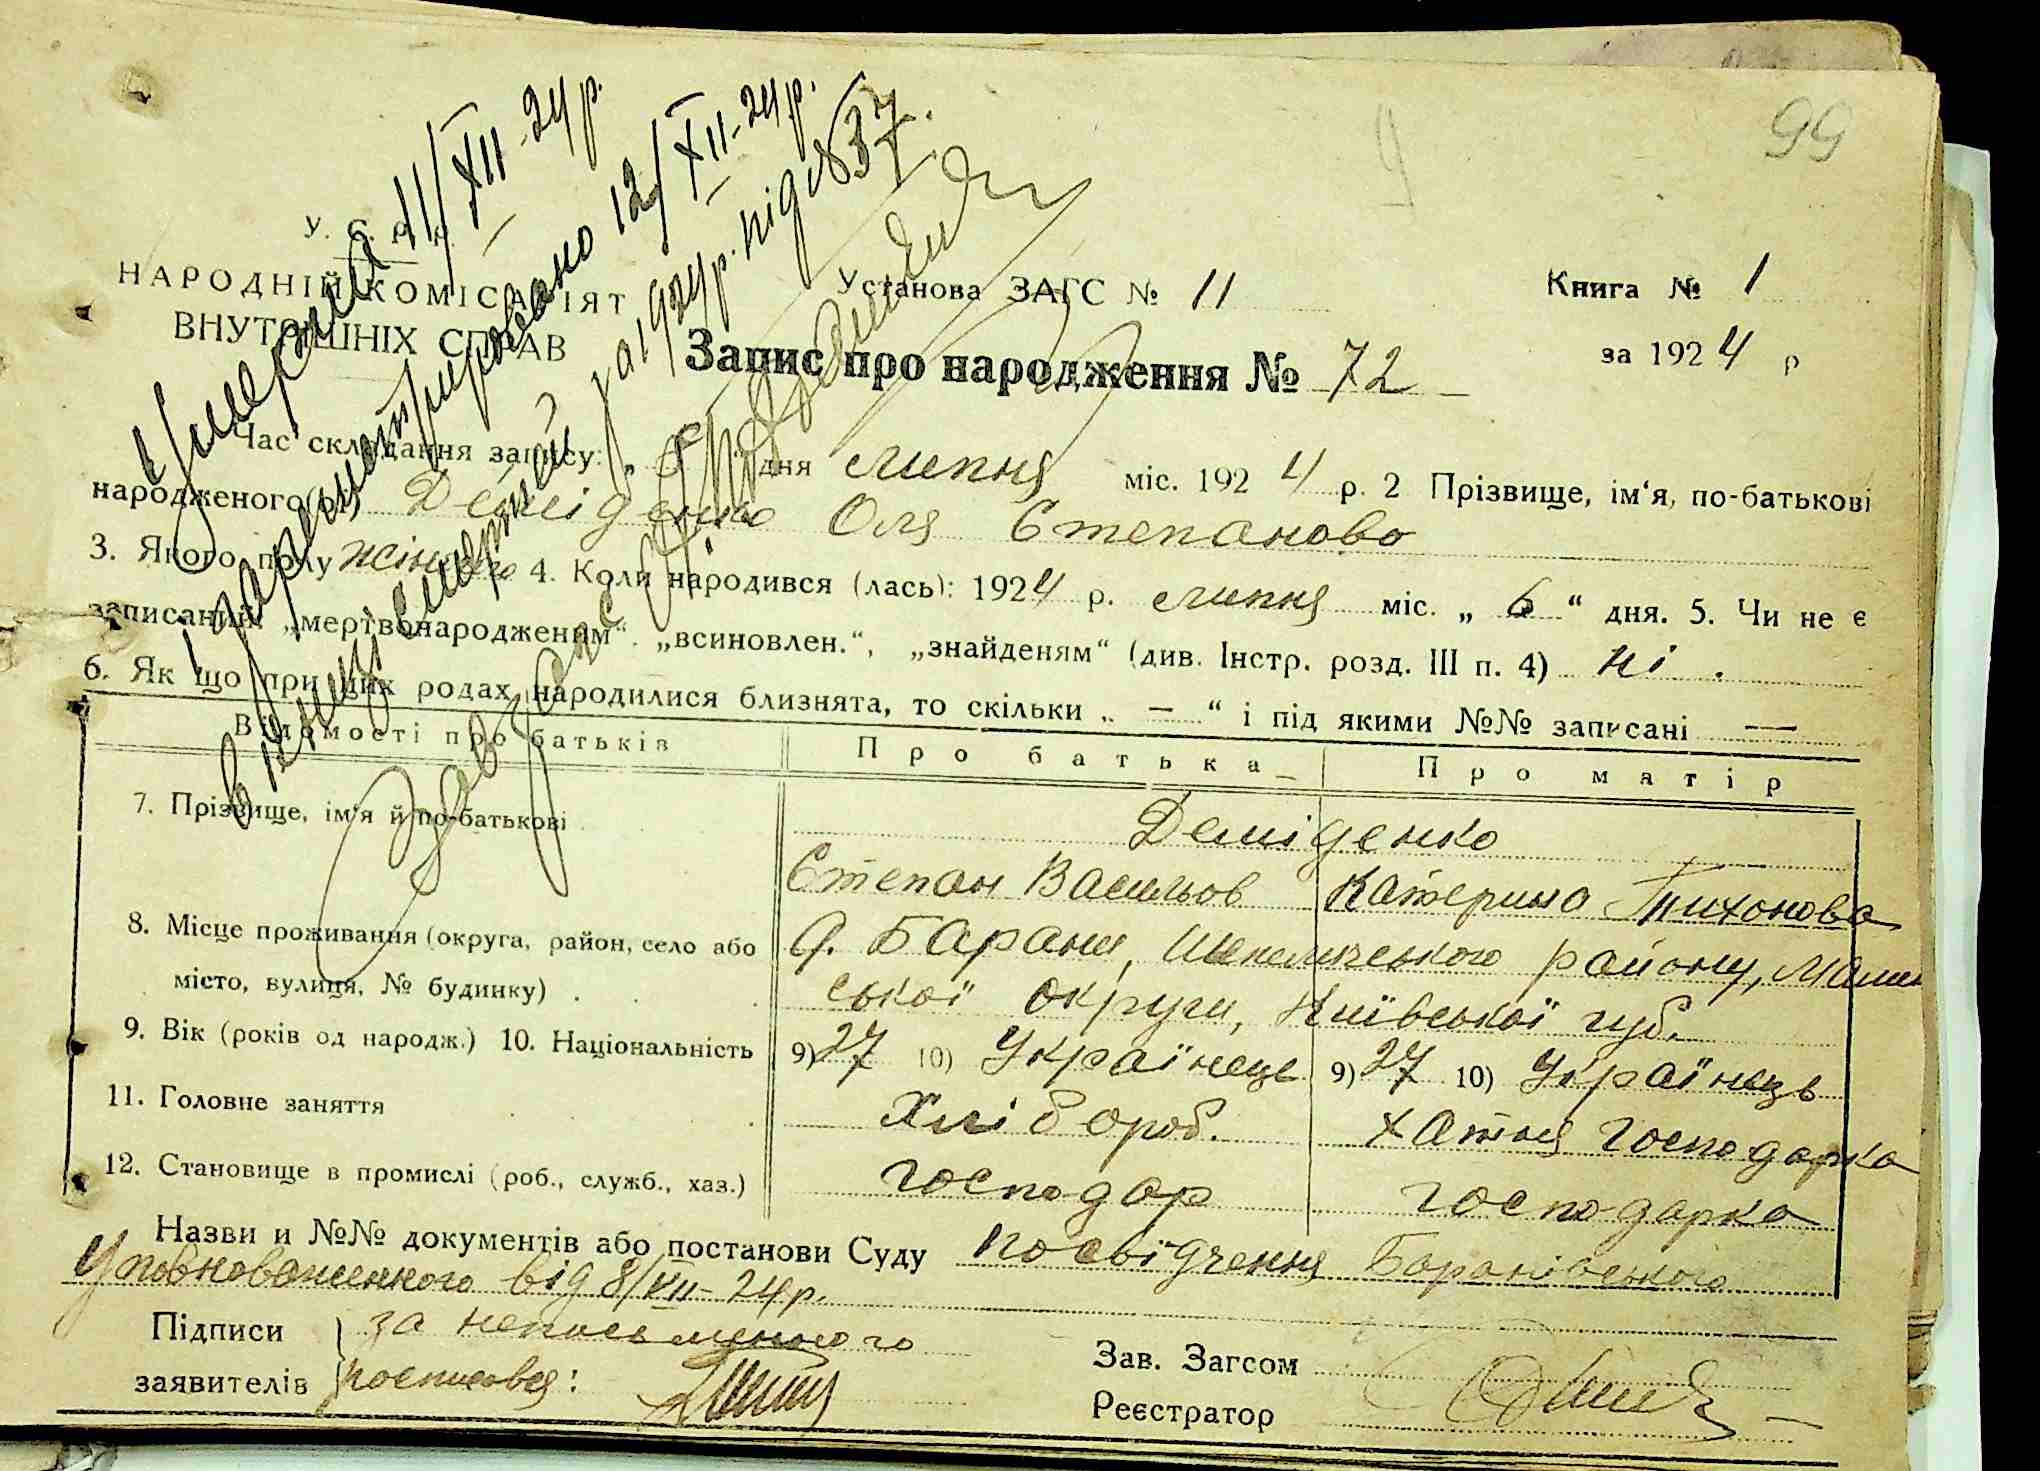 99
У. С. Р. Р.
НАРОДНІЙ КОМІСАРІЯТ
ВНУТРІШНІХ СПРАВ
Установа ЗАГС № 11
Книга № 1
за 1924 р
Запис про народження № 72
Умерша 11/XII-24 р.
і зареџистрировано 12/XII-24 р.
в книзі смертей за 1924 р. під № 37.
Час складання запису: „8“ дня липня міс. 1924 р. 2 Прізвище, ім‘я, по-батькові
народженого(ої) Деміденко Оля Степанова
3. Якого полу жіночого 4. Коли народився (лась): 1924 р. липня міс. „6“ дня. 5. Чи не є
записаний: „мертвонародженим“. „всиновлен.“, „знайденям“ (див. Інстр. розд. III п. 4) ні.
6. Як що при цих родах народилися близнята, то скільки „—“ і під якими №№ записані —
Відомості про батьків Про батька Про матір
7. Прізвище, ім‘я й по-батькові Деміденко
Степан Васильов Катерина Тихонова
8. Місце проживання (округа, район, село або
місто, вулиця, № будинку)
с. Барани, Шепелицького району, Малин
ської округи, Київської губ.
9. Вік (років од народж.) 10. Національність 9) 27 10) Українець 9) 27 10) Українець
11. Головне заняття Хлібороб. хатня господарка
12. Становище в промислі (роб., служб., хаз.) господар господарка
Назви и №№ документів або постанови Суду посвідчення Баранівського
Уповноваженного від 8/VII-24 р.
Підписи за неписьменного
заявителів росписався:
Зав. Загсом
Реєстратор